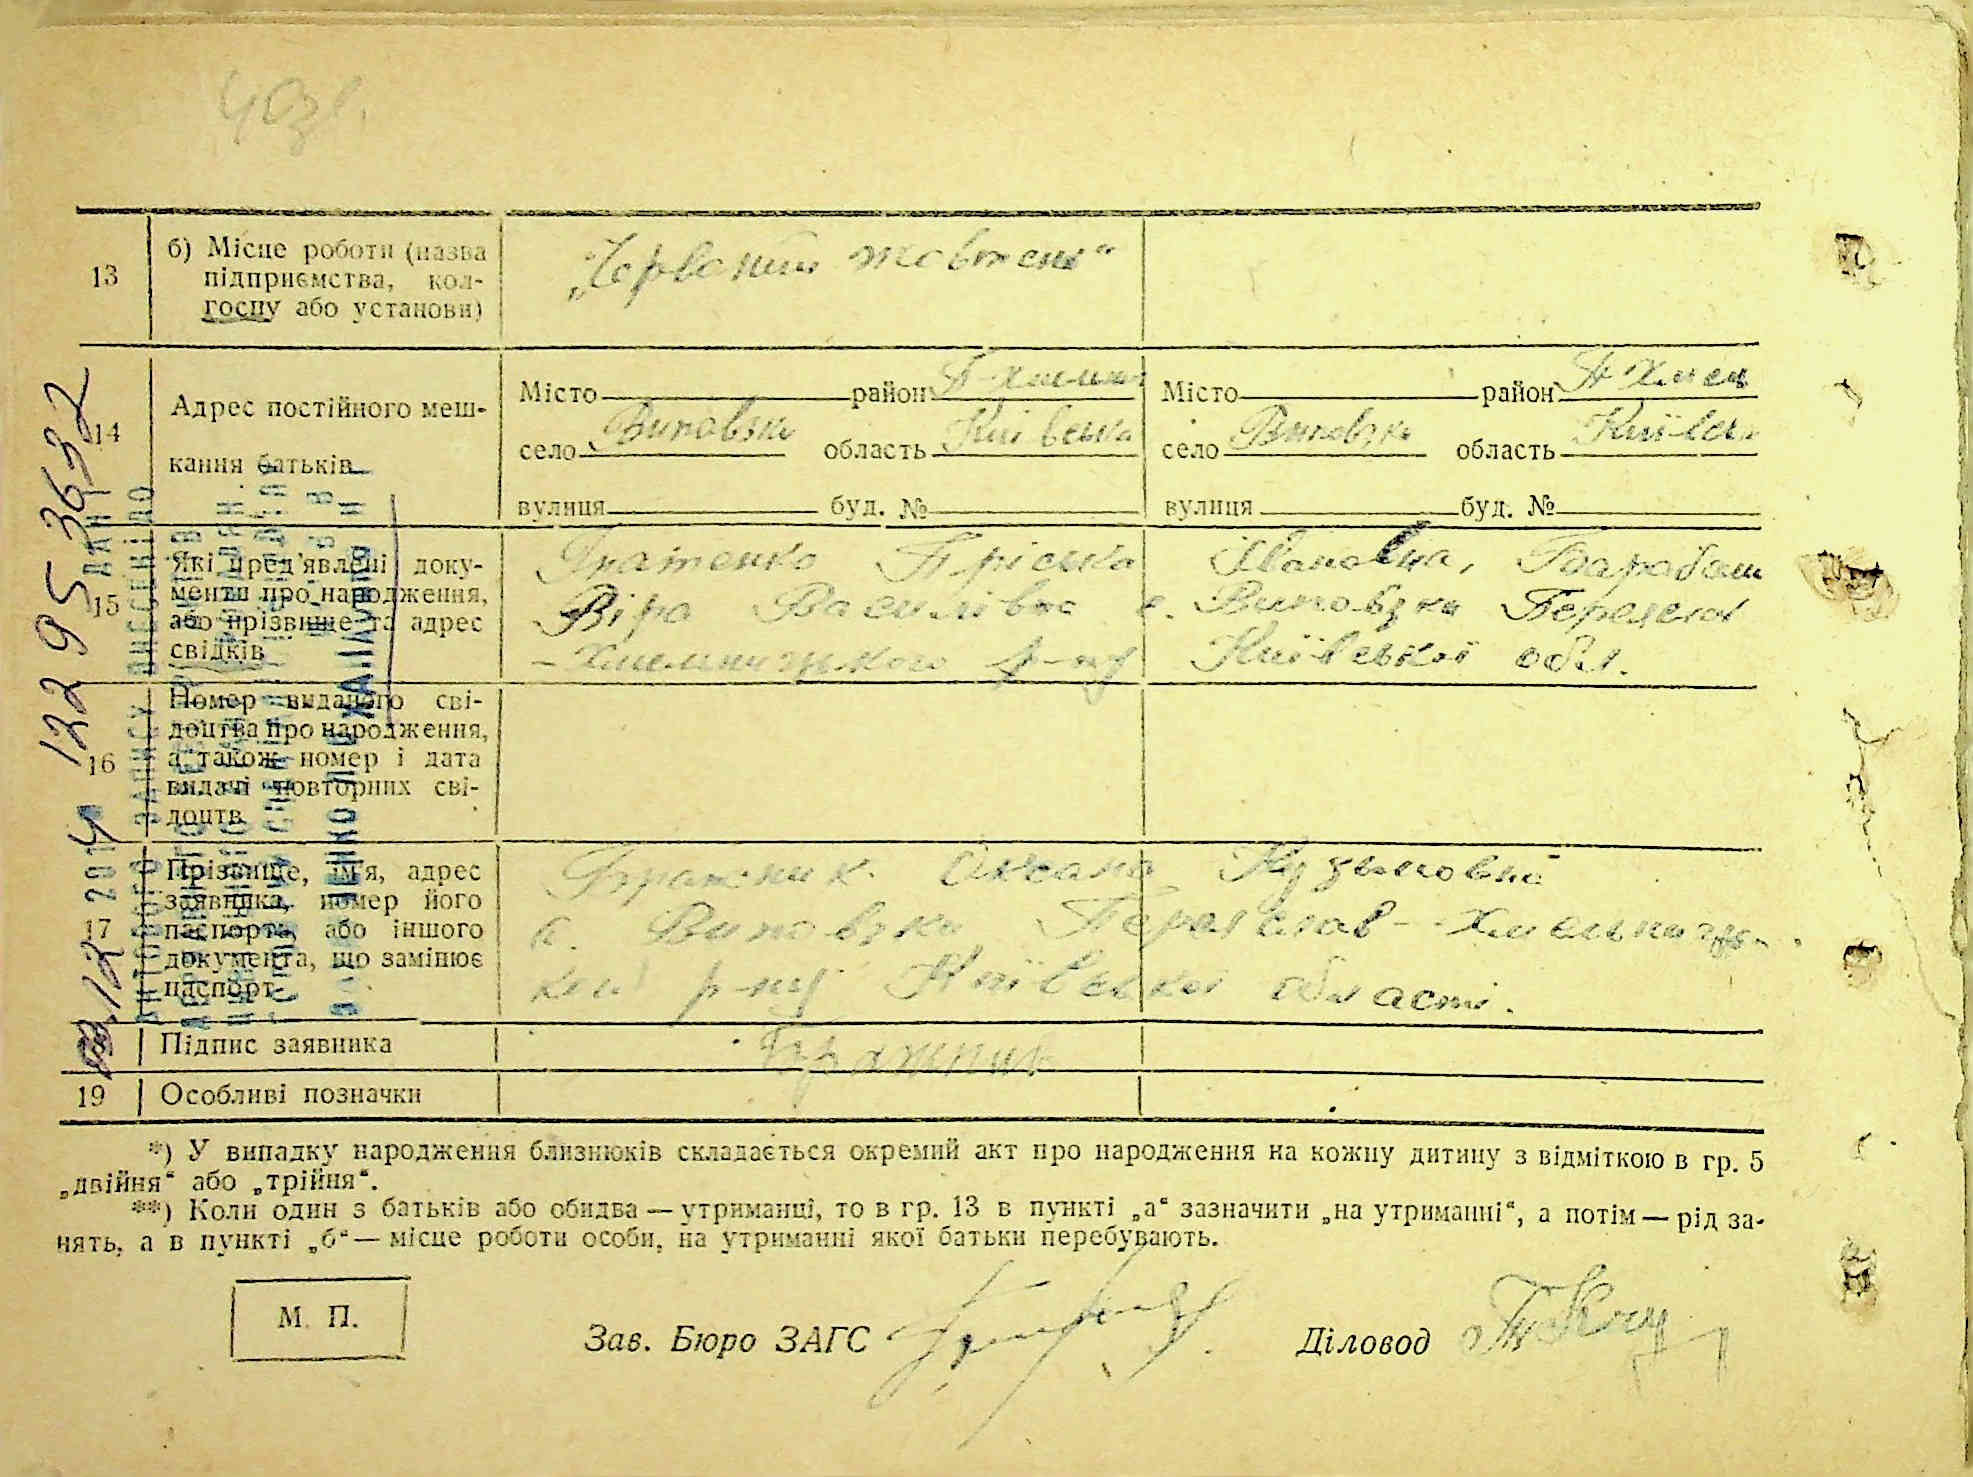 13
б) Місце роботи (назва
підприємства, кол-
госпу або установи)
„Червоний жовтень“
14
Адрес постійного меш-
кання батьків
Місто район П-Хмельн
село Виповзки область Київська
вулиця буд. №
Місто район П-Хмельн
село Виповзки область Київська
вулиця буд. №
15
Які пред'явлені доку-
менти про народження,
або прізвище та адрес
свідків
Гнатенко Пріська Івановна, Барабаш
Віра Василівна с. Виповзки Переяслав
-Хмельницького р-ну Київської обл.
16
Номер виданого сві-
доцтва про народження,
а також номер і дата
видачі повторних сві-
доцтв
17
Прізвище, ім'я, адрес
заявника, номер його
паспорта, або іншого
документа, що замінює
паспорт
Бражник Оксана Кузьмовна
с. Виповзки Переяслав-Хмельницьк
р-ну Київської області.
Підпис заявника
Бражник
19
Особливі позначки
*) У випадку народження близнюків складається окремий акт про народження на кожну дитину з відміткою в гр. 5
„двійня“ або „трійня“.
**) Коли один з батьків або обидва — утриманці, то в гр. 13 в пункті „а“ зазначити „на утриманні“, а потім — рід за-
нять, а в пункті „б“ — місце роботи особи, на утриманні якої батьки перебувають.
М. П.
Зав. Бюро ЗАГС
Діловод
12295 3632